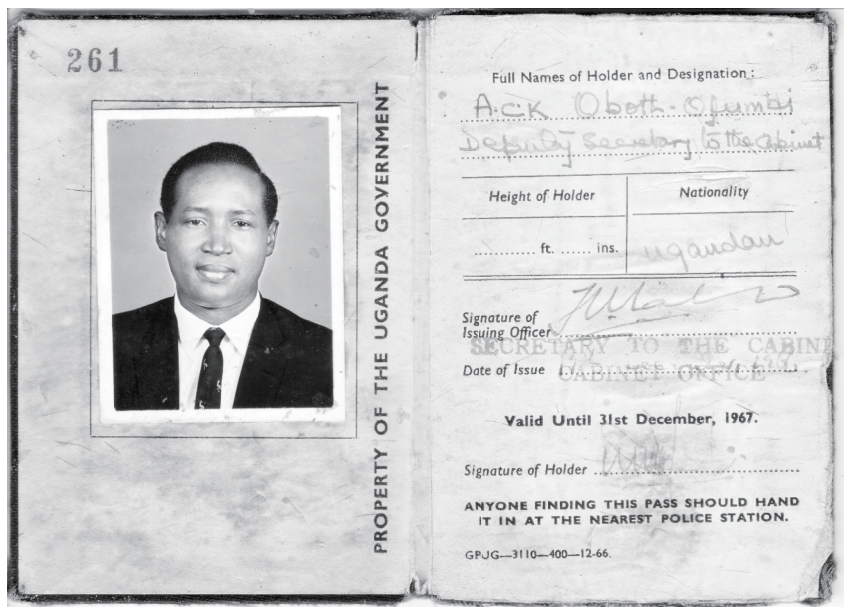 261
PROPERTY OF THE UGANDA GOVERNMENT
Full Names of Holder and Designation:
A.C.K Oboth-Ofumbi
Deputy Secretary to the Cabinet
Height of Holder
Nationality
............ ft. ...... ins.
Ugandan
Signature of
Issuing Officer
SECRETARY TO THE CABINE
Date of Issue
CABINET OFFICE
Valid Until 31st December, 1967.
Signature of Holder
ANYONE FINDING THIS PASS SHOULD HAND
IT IN AT THE NEAREST POLICE STATION.
GPUG—3110—400—12-66.